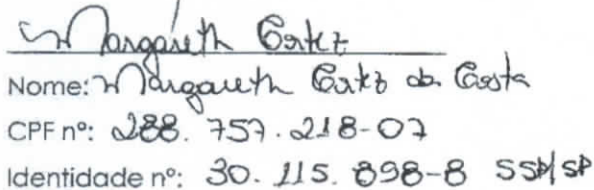 Margareth Cortez
Nome: Margareth Cortez da Costa
CPF nº: 288.757.218-07
Identidade nº: 30.115.898-8 SSP/SP